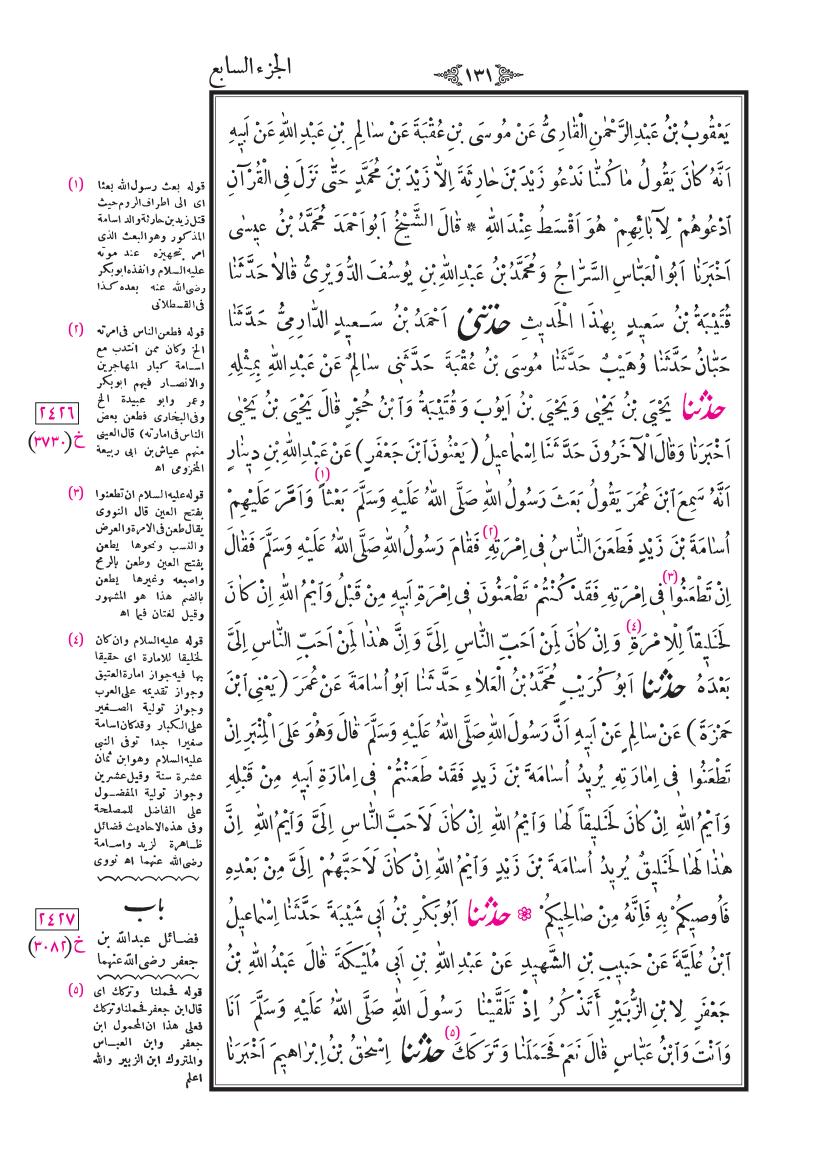 الجزء السابع
١٣١
يَعْقُوبُ بْنُ عَبْدِالرَّحْمٰنِ الْقَارِىُّ عَنْ مُوسَى بْنِ عُقْبَةَ عَنْ سَالِمِ بْنِ عَبْدِاللّٰهِ عَنْ اَبيهِ
اَنَّهُ كَانَ يَقُولُ مَا كُنَّا نَدْعُو زَيْدَ بْنَ حَارِثَةَ اِلاَّ زَيْدَ بْنَ مُحَمَّدٍ حَتّٰى نَزَلَ فِى الْقُرْآنِ
اُدْعُوهُمْ لِآبَائِهِمْ هُوَ اَقْسَطُ عِنْدَ اللّٰهِ * قَالَ الشَّيْخُ اَبُو اَحْمَدَ مُحَمَّدُ بْنُ عيسٰى
اَخْبَرَنَا اَبُو الْعَبَّاسِ السَّرَّاجُ وَمُحَمَّدُ بْنُ عَبْدِاللّٰهِ بْنِ يُوسُفَ الدُّوَيْرِىُّ قَالاَ حَدَّثَنَا
قُتَيْبَةُ بْنُ سَعيدٍ بِهٰذَا الْحَديثِ حَدَّثَنى اَحْمَدُ بْنُ سَعيدٍ الدَّارِمِىُّ حَدَّثَنَا
حَبَّانُ حَدَّثَنَا وُهَيْبٌ حَدَّثَنَا مُوسَى بْنُ عُقْبَةَ حَدَّثَنى سَالِمٌ عَنْ عَبْدِاللّٰهِ بِمِثْلِهِ
حَدَّثَنَا يَحْيَى بْنُ يَحْيٰى وَيَحْيَى بْنُ اَيُّوبَ وَقُتَيْبَةُ وَابْنُ حُجْرٍ قَالَ يَحْيَى بْنُ يَحْيٰى
اَخْبَرَنَا وَقَالَ الْآخَرُونَ حَدَّثَنَا اِسْمَاعيلُ (يَعْنُونَ ابْنَ جَعْفَرٍ) عَنْ عَبْدِاللّٰهِ بْنِ دينَارٍ
اَنَّهُ سَمِعَ ابْنَ عُمَرَ يَقُولُ بَعَثَ رَسُولُ اللّٰهِ صَلَّى اللّٰهُ عَلَيْهِ وَسَلَّمَ بَعْثاً (١) وَاَمَّرَ عَلَيْهِمْ
اُسَامَةَ بْنَ زَيْدٍ فَطَعَنَ النَّاسُ فى اِمْرَتِهِ (٢) فَقَامَ رَسُولُ اللّٰهِ صَلَّى اللّٰهُ عَلَيْهِ وَسَلَّمَ فَقَالَ
اِنْ تَطْعَنُوا (٣) فى اِمْرَتِهِ فَقَدْ كُنْتُمْ تَطْعَنُونَ فى اِمْرَةِ اَبيهِ مِنْ قَبْلُ وَايْمُ اللّٰهِ اِنْ كَانَ
لَخَليقاً لِلْاِمْرَةِ (٤) وَاِنْ كَانَ لَمِنْ اَحَبِّ النَّاسِ اِلَىَّ وَاِنَّ هٰذَا لَمِنْ اَحَبِّ النَّاسِ اِلَىَّ
بَعْدَهُ حَدَّثَنَا اَبُو كُرَيْبٍ مُحَمَّدُ بْنُ الْعَلَاءِ حَدَّثَنَا اَبُو اُسَامَةَ عَنْ عُمَرَ (يَعْنِى ابْنَ
حَمْزَةَ) عَنْ سَالِمٍ عَنْ اَبيهِ اَنَّ رَسُولَ اللّٰهِ صَلَّى اللّٰهُ عَلَيْهِ وَسَلَّمَ قَالَ وَهُوَ عَلَى الْمِنْبَرِ اِنْ
تَطْعَنُوا فى اِمَارَتِهِ يُريدُ اُسَامَةَ بْنَ زَيْدٍ فَقَدْ طَعَنْتُمْ فى اِمَارَةِ اَبيهِ مِنْ قَبْلِهِ
وَايْمُ اللّٰهِ اِنْ كَانَ لَخَليقاً لَهَا وَايْمُ اللّٰهِ اِنْ كَانَ لَاَحَبَّ النَّاسِ اِلَىَّ وَايْمُ اللّٰهِ اِنَّ
هٰذَا لَهَا لَخَليقٌ يُريدُ اُسَامَةَ بْنَ زَيْدٍ وَايْمُ اللّٰهِ اِنْ كَانَ لَاَحَبَّهُمْ اِلَىَّ مِنْ بَعْدِهِ
فَاُوصيكُمْ بِهِ فَاِنَّهُ مِنْ صَالِحيكُمْ * حَدَّثَنَا اَبُو بَكْرِ بْنُ اَبى شَيْبَةَ حَدَّثَنَا اِسْمَاعيلُ
ابْنُ عُلَيَّةَ عَنْ حَبيبِ بْنِ الشَّهيدِ عَنْ عَبْدِاللّٰهِ بْنِ اَبى مُلَيْكَةَ قَالَ عَبْدُاللّٰهِ بْنُ
جَعْفَرٍ لِابْنِ الزُّبَيْرِ أَتَذْكُرُ اِذْ تَلَقَّيْنَا رَسُولَ اللّٰهِ صَلَّى اللّٰهُ عَلَيْهِ وَسَلَّمَ اَنَا
وَاَنْتَ وَابْنُ عَبَّاسٍ قَالَ نَعَمْ فَحَمَلَنَا وَتَرَكَكَ (٥) حَدَّثَنَا اِسْحٰقُ بْنُ اِبْرَاهيمَ اَخْبَرَنَا
(١) قوله بعث رسول الله بعثا
اى الى اطراف الروم حيث
قتل زيد بن حارثة والد اسامة
المذكور وهو البعث الذى
امر بتجهيزه عند موته
عليه السلام وانفذه ابوبكر
رضى الله عنه بعده كذا
فى القسطلانى
(٢) قوله فطعن الناس فى امرته
الخ وكان ممن انتدب مع
اسامة كبار المهاجرين
والانصار فيهم ابوبكر
وعمر وابو عبيدة الخ
وفى البخارى فطعن بعض
الناس فى امارته) قال العينى
منهم عياش بن ابى ربيعة
المخزومى اه
٢٤٢٦
خ (٣٧٣٠)
(٣) قوله عليه السلام ان تطعنوا
بفتح العين قال النووى
يقال طعن فى الامرة والعرض
والنسب ونحوها يطعن
بفتح العين وطعن بالرمح
واصبعه وغيرها يطعن
بالضم هذا هو المشهور
وقيل لغتان فيها اه
(٤) قوله عليه السلام وان كان
لخليقا للامارة اى حقيقا
بها فيه جواز امارة العتيق
وجواز تقديمه على العرب
وجواز تولية الصغير
على الكبار وقد كان اسامة
صغيرا جدا توفى النبى
عليه السلام وهو ابن ثمان
عشرة سنة وقيل عشرين
وجواز تولية المفضول
على الفاضل للمصلحة
وفى هذه الاحاديث فضائل
ظاهرة لزيد واسامة
رضى الله عنهما اه نووى
باب
فضائل عبدالله بن
جعفر رضى الله عنهما
٢٤٢٧
خ (٣٠٨٢)
(٥) قوله فحملنا وتركك اى
قال ابن جعفر فحملنا وتركك
فعلى هذا ان المحمول ابن
جعفر وابن العباس
والمتروك ابن الزبير والله
اعلم